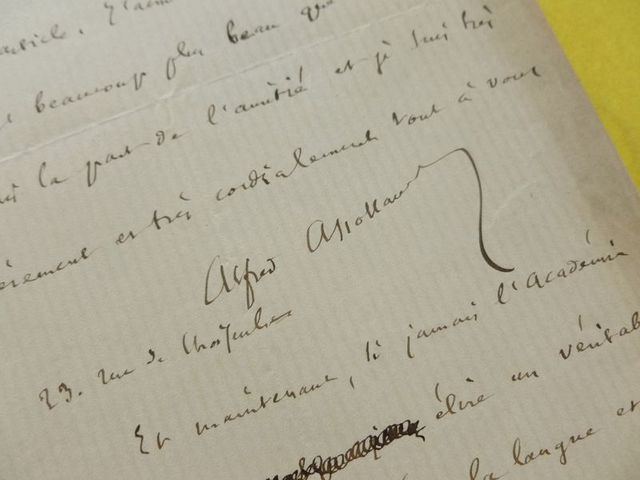 article.
beaucoup plus beau que
la part de l'amitié et je suis très
èrement et très cordialement tout à vous
Alfred Assollant
23. rue de
Et maintenant, si jamais l'Académie
élire un véritab
la langue et